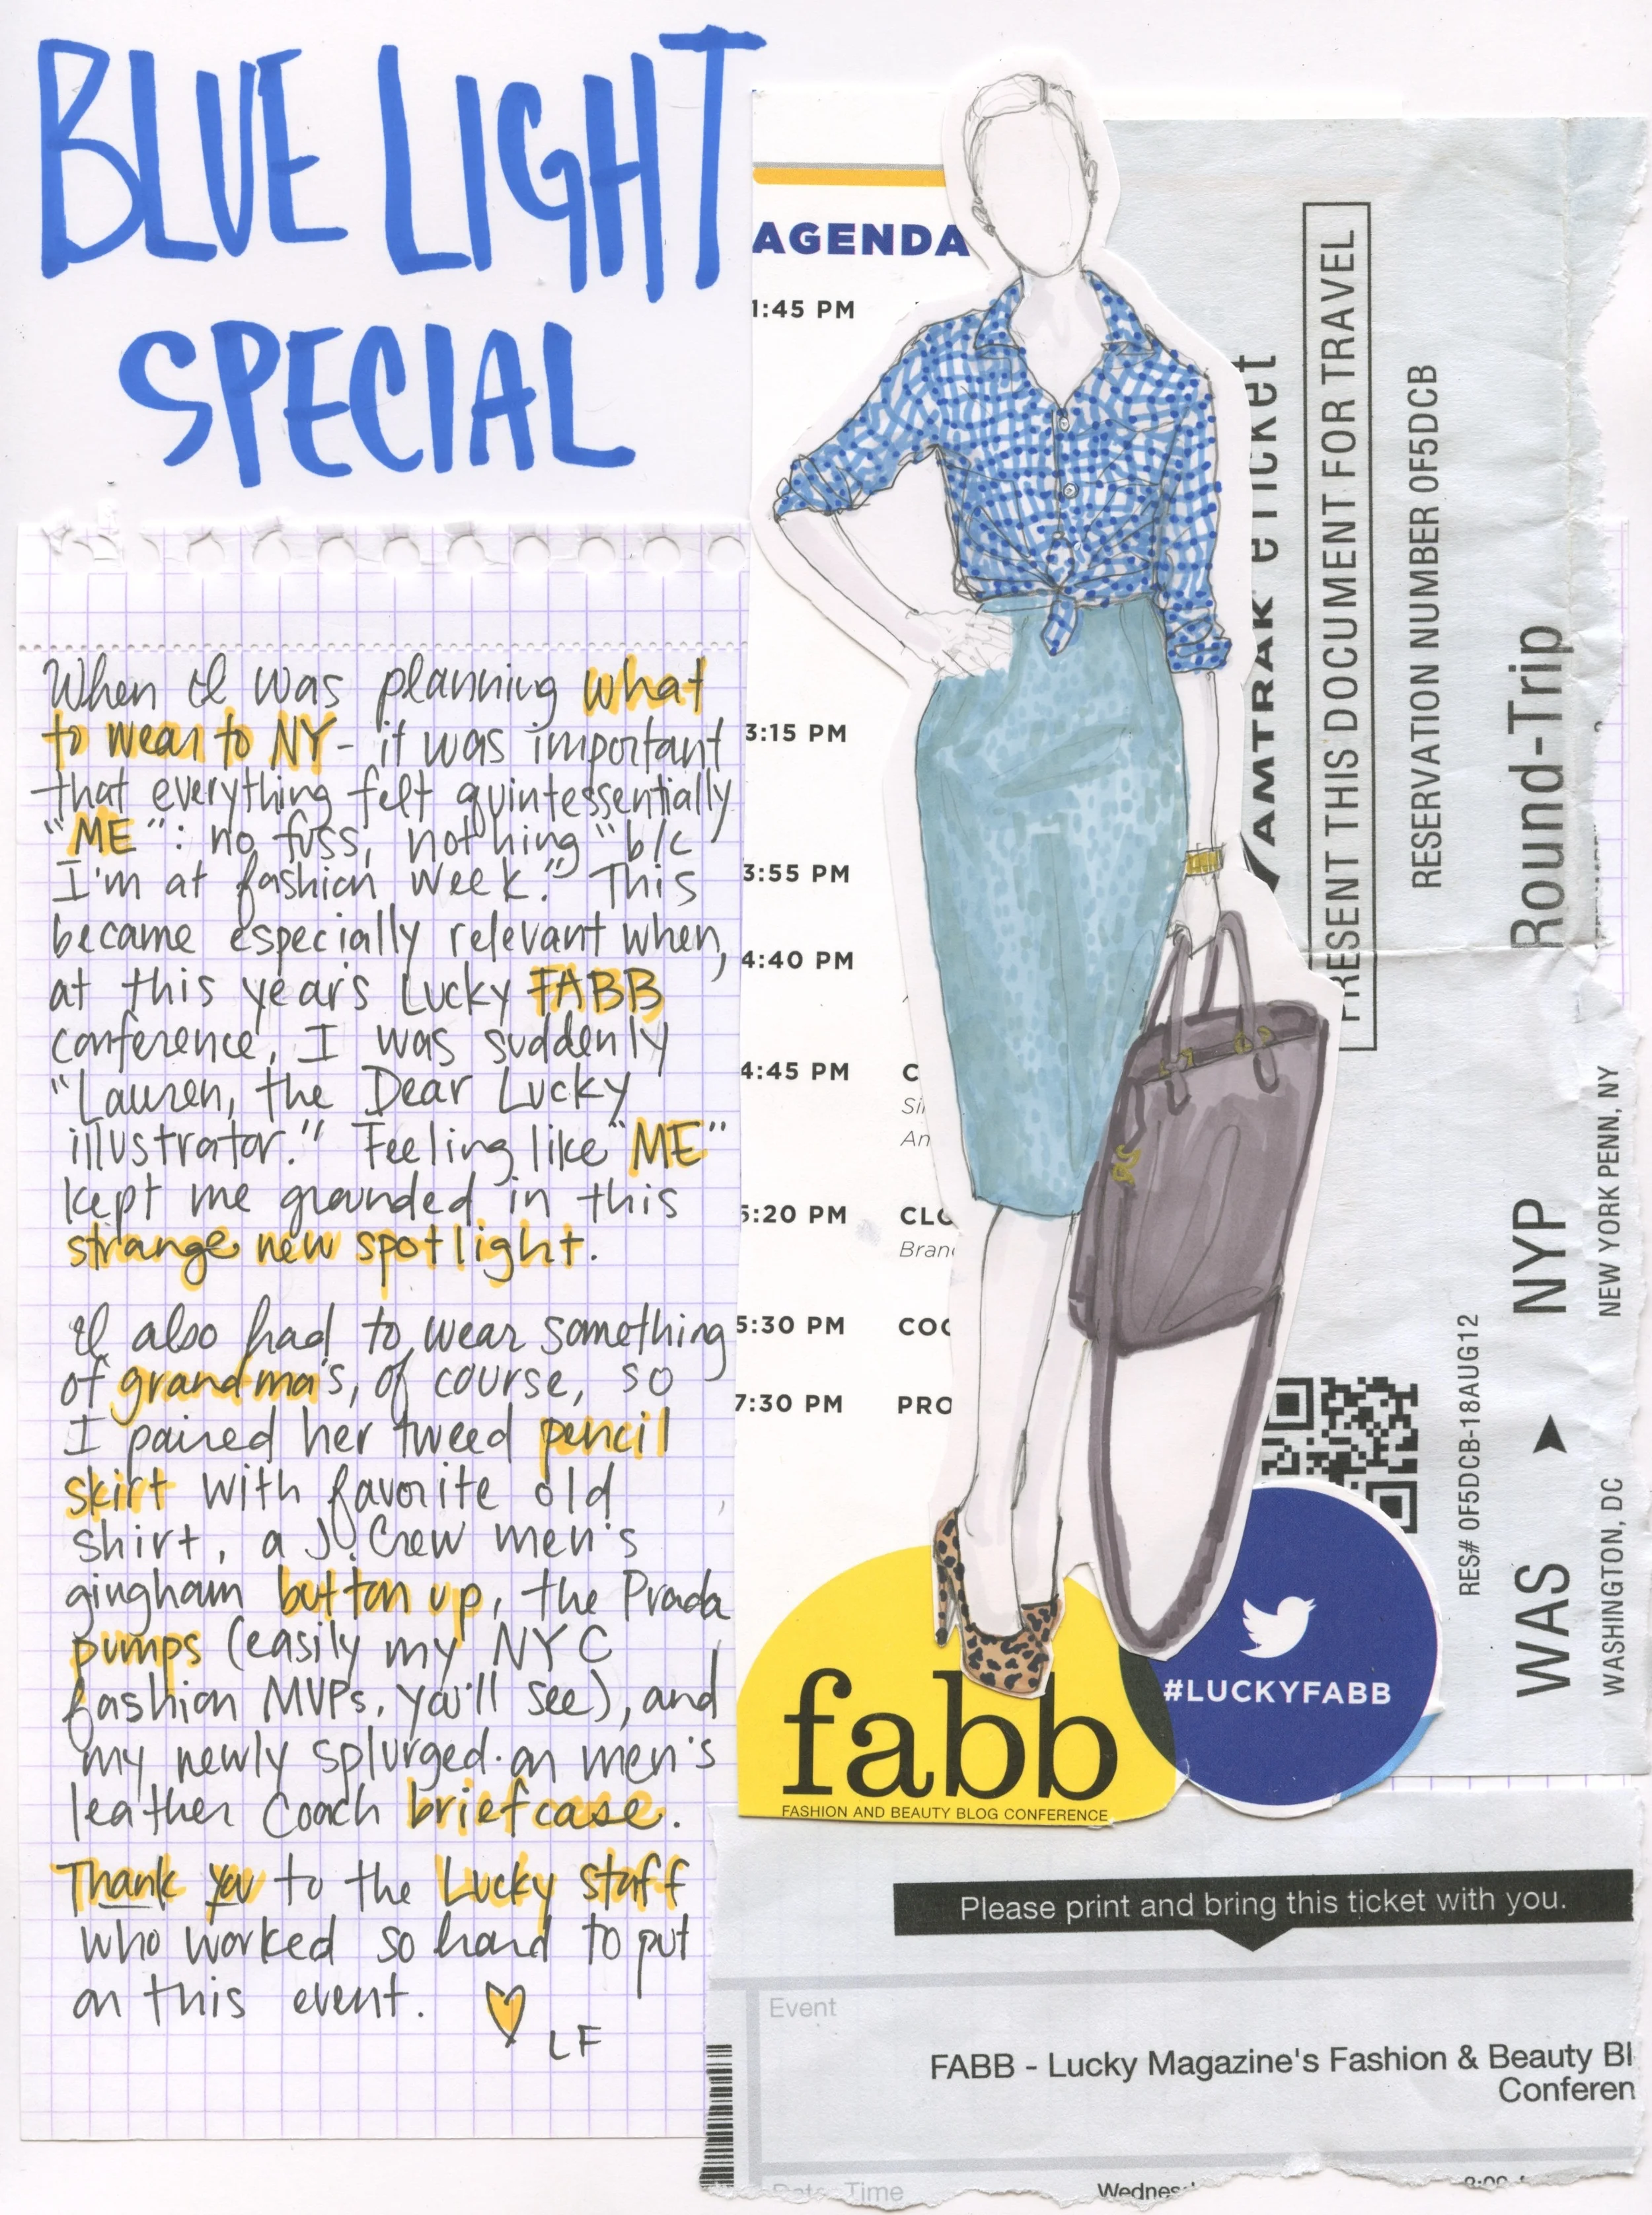 BLUE LIGHT
SPECIAL
When I was planning what
to wear to NY - it was important
that everything felt quintessentially
"ME": no fuss, nothing "b/c
I'm at fashion week." This
became especially relevant when,
at this year's Lucky FABB
conference, I was suddenly
"Lauren, the Dear Lucky
illustrator." Feeling like "ME"
kept me grounded in this
strange new spotlight.
I also had to wear something
of grandma's, of course, so
I paired her tweed pencil
skirt with favorite old
shirt, a J. Crew men's
gingham button up, the Prada
pumps (easily my NYC
fashion MVPs, you'll see), and
my newly splurged-on men's
leather Coach briefcase.
Thank you to the Lucky staff
who worked so hard to put
on this event.
LF
AGENDA
1:45 PM
3:15 PM
3:55 PM
4:40 PM
4:45 PM C
Si
An
5:20 PM CLO
Bran
5:30 PM COC
7:30 PM PRO
AMTRAK eTicket
PRESENT THIS DOCUMENT FOR TRAVEL
RESERVATION NUMBER 0F5DCB
Round-Trip
RES# 0F5DCB-18AUG12
WAS ▶ NYP
WASHINGTON, DC NEW YORK PENN, NY
fabb
FASHION AND BEAUTY BLOG CONFERENCE
#LUCKYFABB
Please print and bring this ticket with you.
Event
FABB - Lucky Magazine's Fashion & Beauty Bl
Conferen
Date Time
Wednes